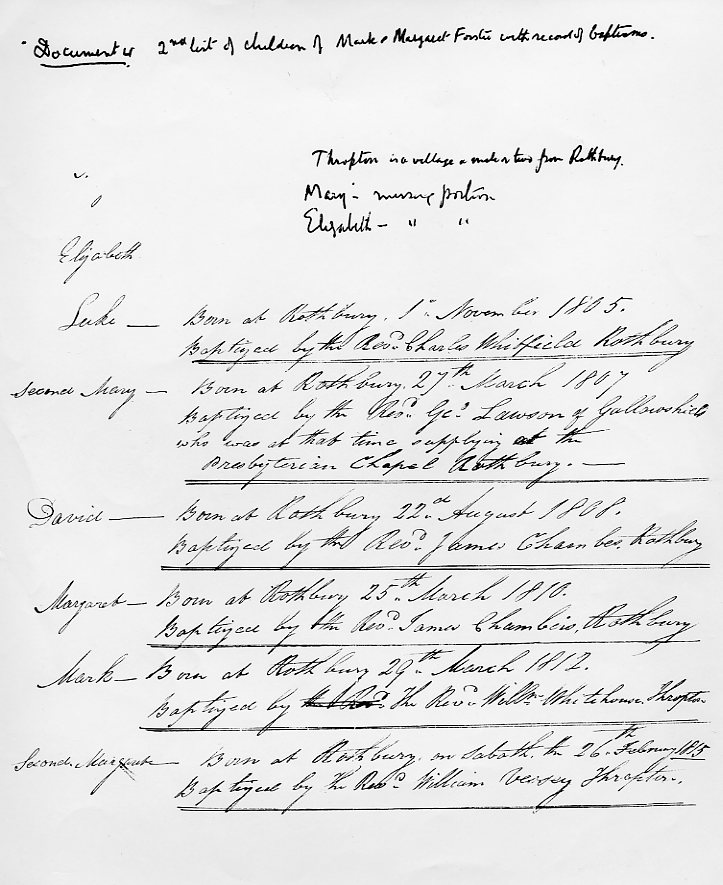 Document 4 2nd list of children of Mark & Margaret Forster with record of baptisms.
Thropton is a village a mile or two from Rothbury.
Mary - missing portion
Elizabeth - " "
Elizabeth
Luke — Born at Rothbury, 1st November 1805.
Baptized by the Revd. Charles Whitfield Rothbury
Second Mary — Born at Rothbury, 27th March 1807
Baptized by the Revd. Geo. Lawson of Gallowshiels
who was at that time supplying at the
Presbyterian Chapel Rothbury. —
David — Born at Rothbury 22d. August 1808.
Baptized by the Revd. James Chambers, Rothbury
Margaret — Born at Rothbury 25th March 1810.
Baptized by the Revd. James Chambers, Rothbury
Mark — Born at Rothbury 29th March 1812.
Baptized by the Revd. The Revd. Willm. Whitehouse, Thropton
Second Margaret — Born at Rothbury, on Sabath, the 26th February 1815
Baptized by The Revd. William Thropton.